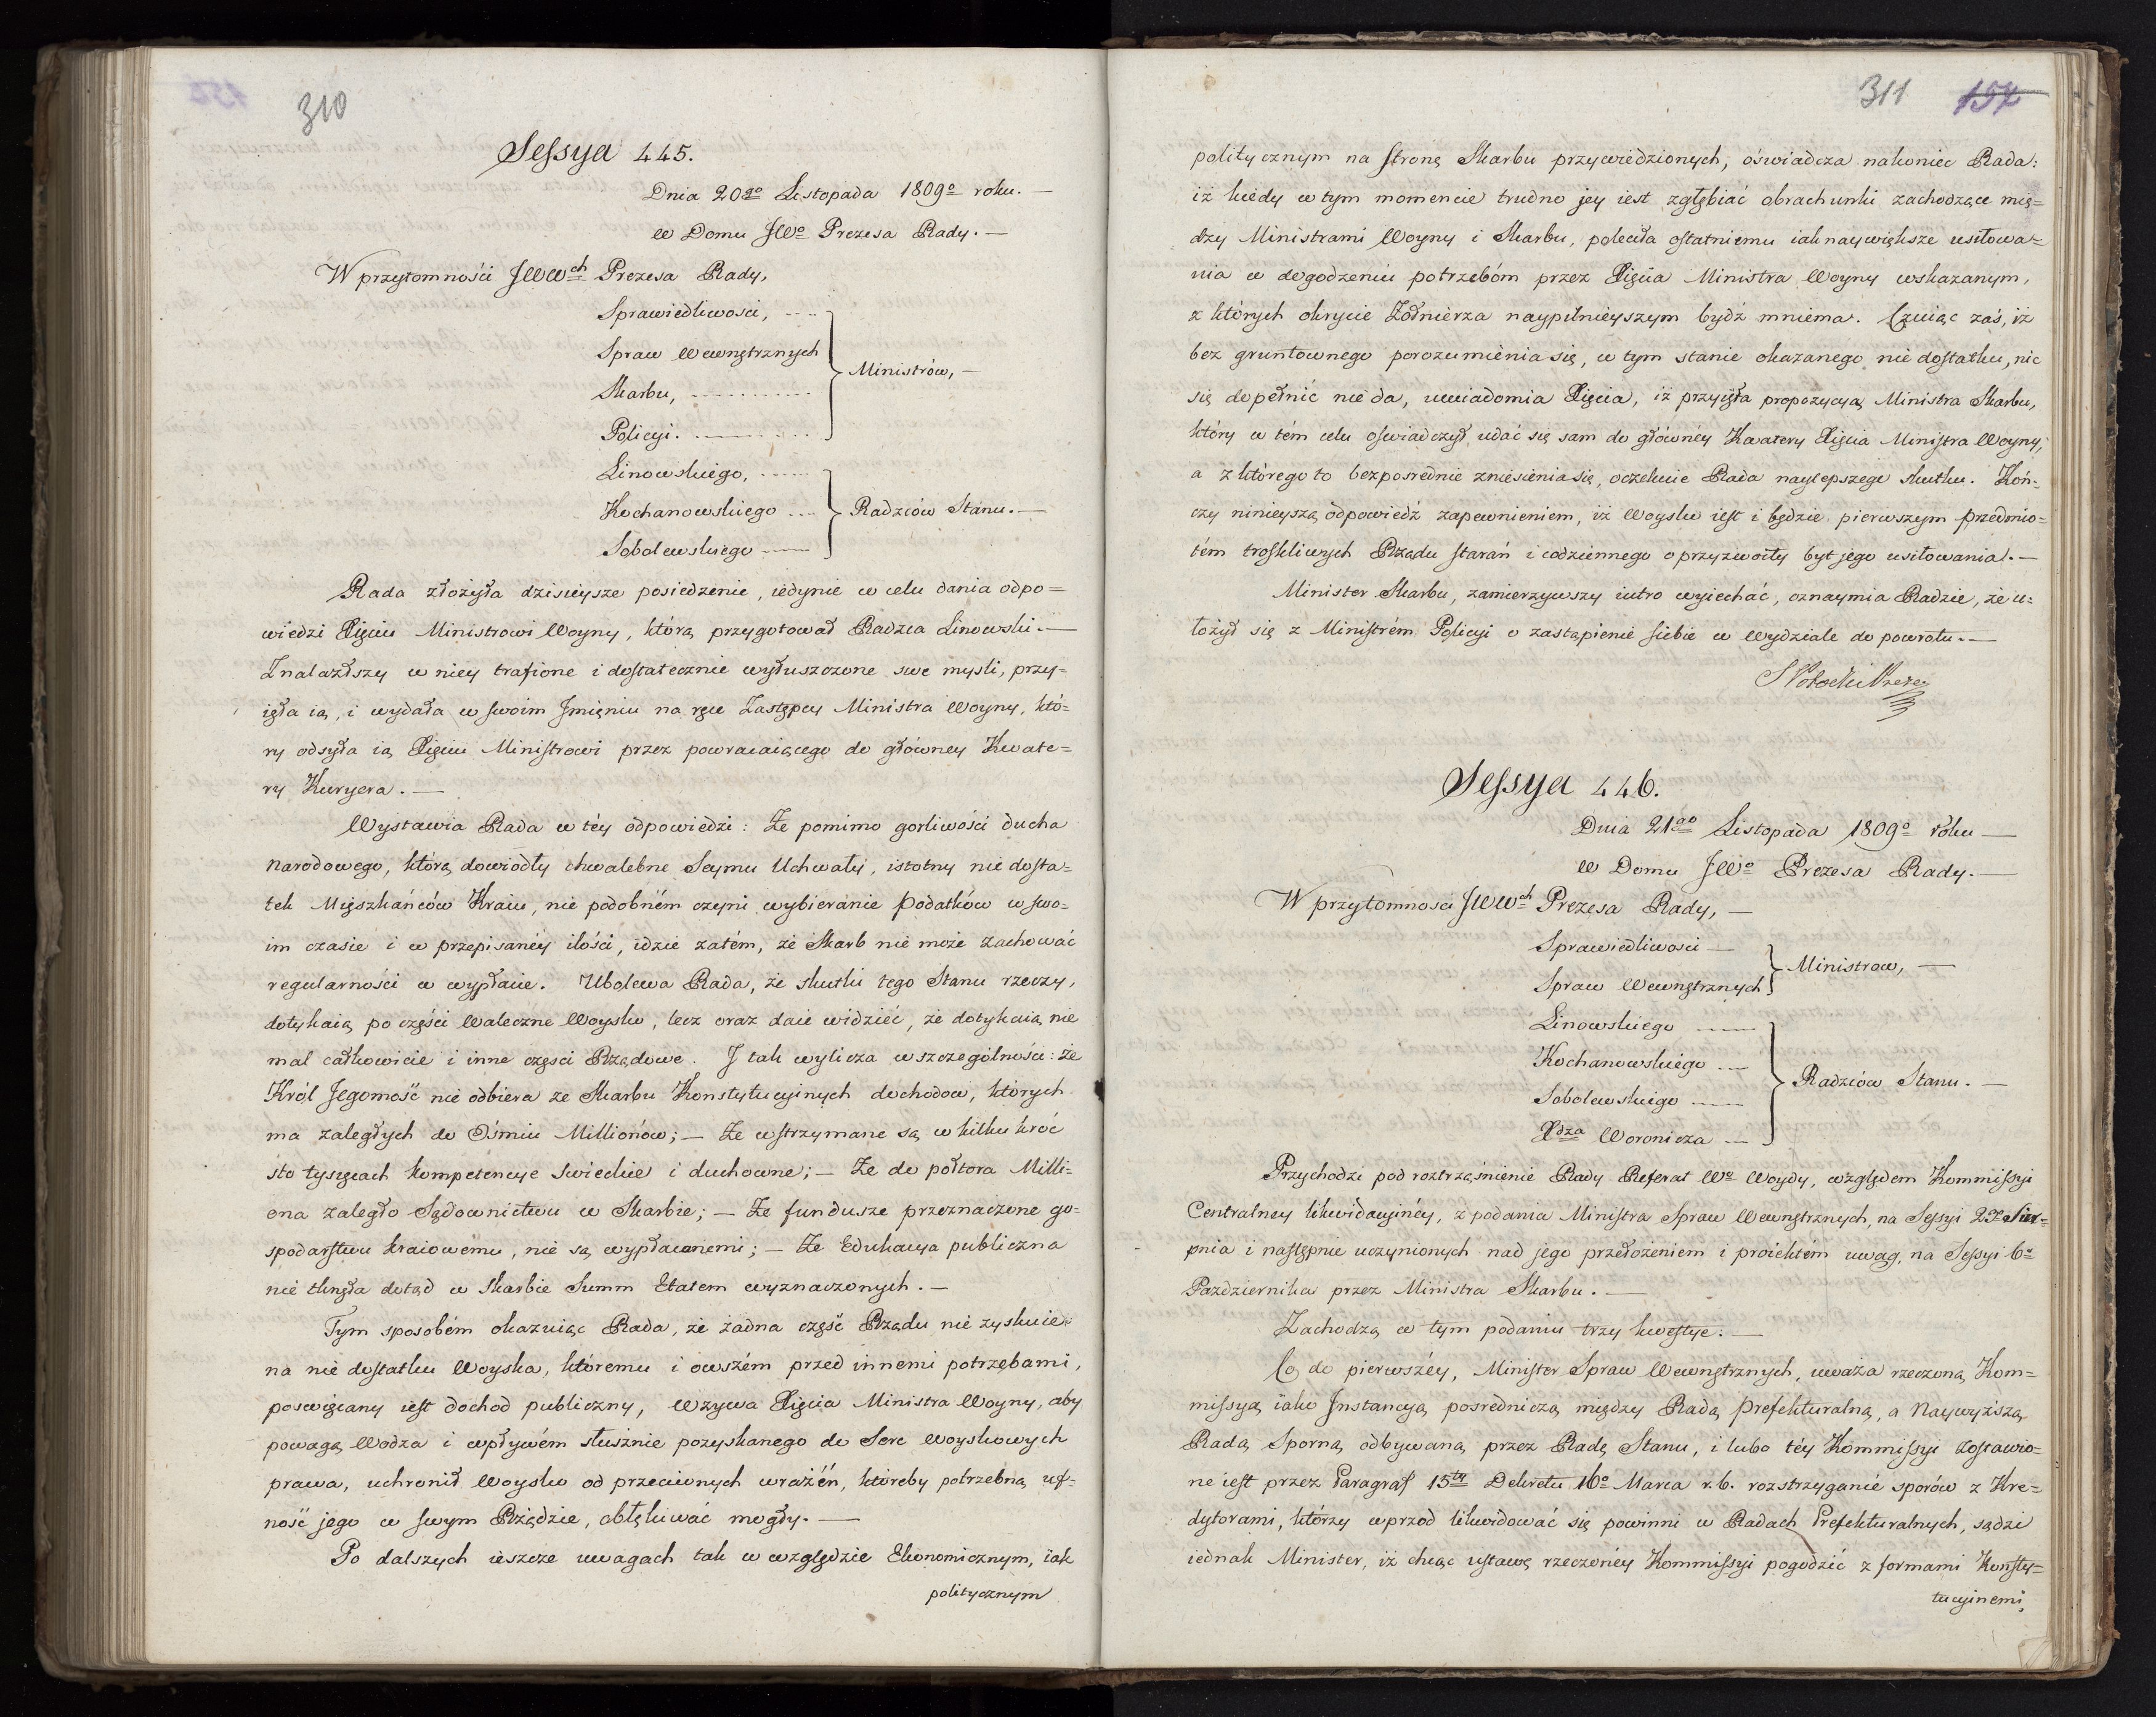 310
Sessya 445.
Dnia 20go Listopada 1809o roku. —
w Domu JWo Prezesa Rady. —
W przytomności JWWch Prezesa Rady,
Sprawiedliwości,
Spraw Wewnętrznych
Skarbu,
Policyi.
Ministrów, —
Linowskiego,
Kochanowskiego
Sobolewskiego
Radziów Stanu. —
Rada złożyła dzisieysze posiedzenie, iedynie w celu dania odpo=
wiedzi Xięciu Ministrowi Woyny, którą przygotował Radzca Linowski. —
Znalazłszy w niey trafione i dostatecznie wyłuszczone swe mysli, przy=
ięła ią, i wydała w swoim Jmięniu na ręce Zastępcy Ministra Woyny, któ=
ry odsyła ią Xięciu Ministrowi przez powracaiącego do główney Kwate=
ry Kuryera. —
Wystawia Rada w téy odpowiedzi: Że pomimo gorliwości ducha
Narodowego, którą dowiodły chwalebne Seymu Uchwały, istotny nie dosta=
tek Mięszkańców Kraiu, nie podobném czyni wybieranie podatków w swo=
im czasie i w przepisanéy ilości, idzie zatém, że Skarb nie może zachować
regularności w wypłacie. Ubolewa Rada, że skutki tego Stanu rzeczy,
dotykaią po części Waleczne Woysko, lecz oraz daie widzieć, że dotykaią nie
mal całkowicie i inne części Rządowe. J tak wylicza w szczególności: że
Król Jegomość nie odbiera ze Skarbu Konstytucyinych dochodow, których
ma zaległych do Ośmiu Millionów; — Że wstrzymane są w kilku kroć
sto tysięcach kompetencye swieckie i duchowne; — Że do półtora Milli=
ona zaległo Sądownictwu w Skarbie; — Że fundusze przeznaczone go=
spodarstwu kraiowemu, nie są wypłacanemi; — Że Edukacya publiczna
nie tknęła dotąd w Skarbie Summ Etatem wyznaczonych. —
Tym sposobém okazuiąc Rada, że żadna część Rządu nie zyskuie
na nie dostatku Woyska, któremu i owszém przed innemi potrzebami,
poswięcany iest dochod publiczny, wzywa Xięcia Ministra Woyny, aby
powagą Wodza i wpływém słusznie pozyskanego do Serc Woyskowych
prawa, uchronił Woysko od przeciwnych wrażéń, któreby potrzebną uf=
ność jego w swym Rządzie, obłąkiwać mogły. —
Po dalszych ieszcze uwagach tak w względzie Ekonomicznym, iak
politycznym
311 157
politycznym na stronę Skarbu przywiedzionych, oświadcza nakoniec Rada:
iż kiedy w tym momencie trudno jey iest zgłębiać obrachunki zachodzące mię=
dzy Ministrami Woyny i Skarbu, poleciła ostatniemu iak naywiększe usiłowa=
nia w dogodzeniu potrzebóm przez Xięcia Ministra Woyny wskazanym,
z których okrycie Żołnierza naypilnieyszym bydź mniema. Czuiąc zaś, iż
bez gruntownego porozumienia się, w tym stanie okazanego nie dostatku, nic
się dopełnić nie da, uwiadomia Xięcia, iż przyięła propozycyą Ministra Skarbu,
który w tém celu oswiadczył, udać się sam do głównéy Kwatery Xięcia Ministra Woyny,
a z którego to bezposrednie zniesienia się, oczekuie Rada naylepszego skutku. Koń=
czy ninieyszą odpowiedź zapewnieniem, iż Woysko iest i będzie pierwszym przedmio=
tém troskliwych Rządu starań i codziennego o przyzwoity byt jego usiłowania. —
Minister Skarbu, zamierzywszy iutro wyiechać, oznaymia Radzie, że u=
łożył się z Ministrém Policyi o zastąpienie siebie w Wydziale do powrotu. —
S Potocki Prezes
Sessya 446.
Dnia 21go Listopada 1809o roku —
w Domu JWo Prezesa Rady. —
W przytomności JWWch Prezesa Rady, —
Sprawiedliwości —
Spraw Wewnętrznych
Ministrow, —
Linowskiego
Kochanowskiego
Sobolewskiego
Xdza Woronicza —
Radziów Stanu. —
Przychodzi pod roztrząśnienie Rady Referat Wo Woydy, względem Kommissyi
Centralney likwidacyinéy, z podania Ministra Spraw Wewnętrznych, na Sessyi 27 Sier=
pnia i następnie uczynionych nad jego przełożeniem i proiektém uwag, na Sessyi 6o
Pazdziernika przez Ministra Skarbu. —
Zachodzą w tym podaniu trzy kwestye. —
Co do pierwszéy, Minister Spraw Wewnętrznych, uważa rzeczoną Kom=
missyą iako Jnstancyą posredniczą między Radą Prefekturalną, a Naywyższą
Radą Sporną odbywaną przez Radę Stanu, i lubo téy Kommissyi zostawio=
ne iest przez Paragraf 15ty Dekretu 16o Marca r. b. rozstrzyganie sporów z Kre=
dytorami, którzy wprzod likwidować się powinni w Radach Prefekturalnych, sądzi
iednak Minister, iż chcąc ustawę rzeczonéy Kommissyi pogodzić z formami Konsty=
tucyinemi,